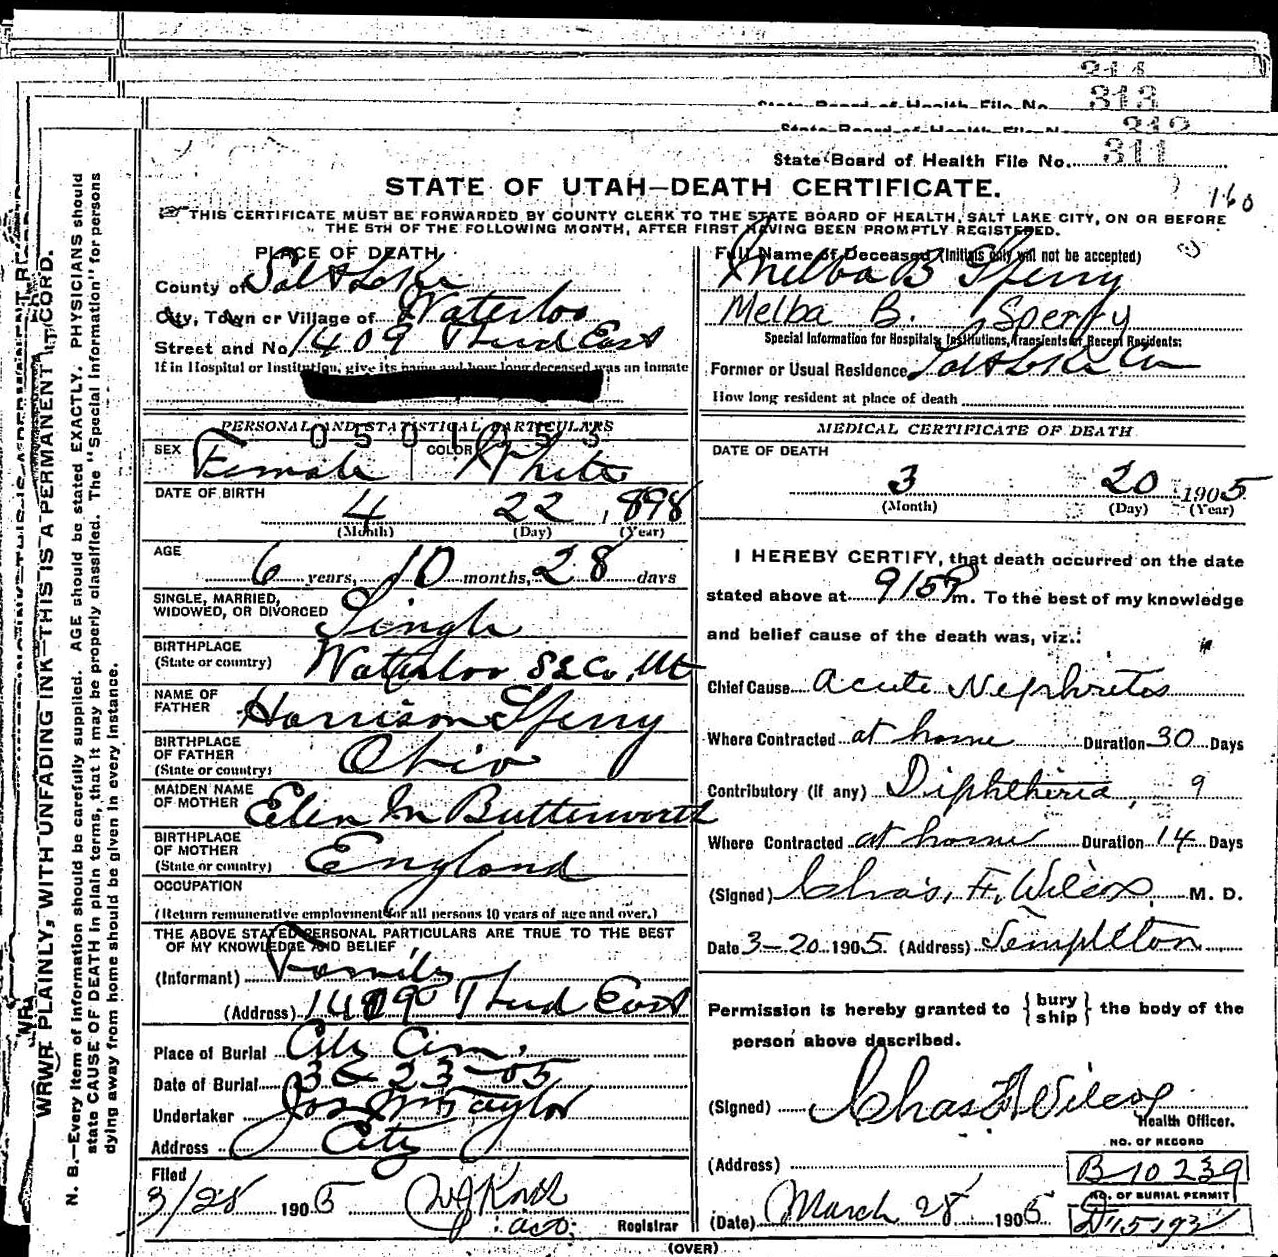 314
State Board of Health File No. 313
State Board of Health File No. 312
State Board of Health File No. 311
STATE OF UTAH—DEATH CERTIFICATE.
160
THIS CERTIFICATE MUST BE FORWARDED BY COUNTY CLERK TO THE STATE BOARD OF HEALTH, SALT LAKE CITY, ON OR BEFORE
THE 5TH OF THE FOLLOWING MONTH, AFTER FIRST HAVING BEEN PROMPTLY REGISTERED.
WRITE PLAINLY, WITH UNFADING INK—THIS IS A PERMANENT RECORD.
N. B.—Every item of information should be carefully supplied. AGE should be stated EXACTLY. PHYSICIANS should
state CAUSE OF DEATH in plain terms, that it may be properly classified. The "Special Information" for persons
dying away from home should be given in every instance.
PLACE OF DEATH
County of Salt Lake
City, Town or Village of Waterloo
Street and No. 1409 Third East
If in Hospital or Institution, give its name and how long deceased was an inmate
PERSONAL AND STATISTICAL PARTICULARS
0501055
SEX Female COLOR White
DATE OF BIRTH
4 22 1898
(Month) (Day) (Year)
AGE
6 years, 10 months, 28 days
SINGLE, MARRIED,
WIDOWED, OR DIVORCED Single
BIRTHPLACE
(State or country) Waterloo SLCo, Ut
NAME OF
FATHER Harrison Sperry
BIRTHPLACE
OF FATHER
(State or country) Ohio
MAIDEN NAME
OF MOTHER Elen M Butterworth
BIRTHPLACE
OF MOTHER
(State or country) England
OCCUPATION
(Return remunerative employment for all persons 10 years of age and over.)
THE ABOVE STATED PERSONAL PARTICULARS ARE TRUE TO THE BEST
OF MY KNOWLEDGE AND BELIEF
(Informant) Family
(Address) 1409 Third East
Place of Burial City Cem.
Date of Burial 3 23-05
Undertaker Jos Wm Taylor
Address City
Filed
3/28 1905
Registrar
Full Name of Deceased (Initials only will not be accepted)
Melba B Sperry
Melba B. Sperry
Special Information for Hospitals, Institutions, Transients or Recent Residents:
Former or Usual Residence Salt Lake Co
How long resident at place of death
MEDICAL CERTIFICATE OF DEATH
DATE OF DEATH
3 20 1905
(Month) (Day) (Year)
I HEREBY CERTIFY, that death occurred on the date
stated above at 915P m. To the best of my knowledge
and belief cause of the death was, viz.:
Chief Cause Acute Nephritos
Where Contracted at home Duration 30 Days
Contributory (if any) Diphtheria, 9
Where Contracted at home Duration 14 Days
(Signed) Chas. F. Wilcox, M. D.
Date 3-20 1905. (Address) Templeton
Permission is hereby granted to {bury ship} the body of the
person above described.
(Signed) Chas F Wilcox
Health Officer.
NO. OF RECORD
(Address) B 10239
NO. OF BURIAL PERMIT
(Date) March 28 1905 D15192
(OVER)